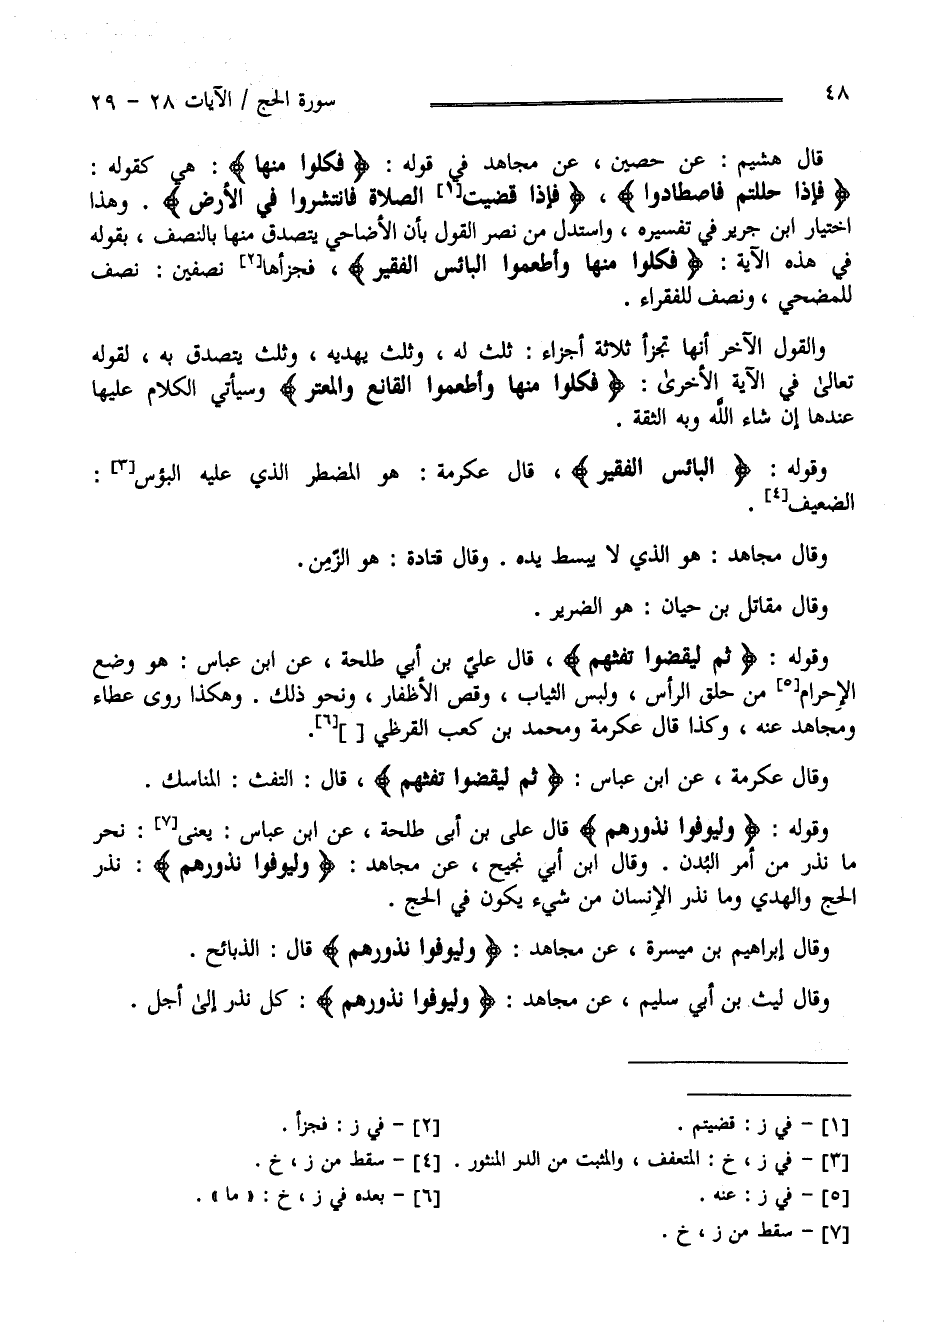 ٤٨
سورة الحج / الآيات ٢٨ - ٢٩
قال هشيم : عن حصين ، عن مجاهد في قوله : ﴿ فكلوا منها ﴾ : هي كقوله :
﴿ فإذا حللتم فاصطادوا ﴾ ، ﴿ فإذا قضيت[١] الصلاة فانتشروا في الأرض ﴾ . وهذا
اختيار ابن جرير في تفسيره ، واستدل من نصر القول بأن الأضاحي يتصدق منها بالنصف ، بقوله
في هذه الآية : ﴿ فكلوا منها وأطعموا البائس الفقير ﴾ ، فجزأها[٢] نصفين : نصف
للمضحي ، ونصف للفقراء .
والقول الآخر أنها تجزأ ثلاثة أجزاء : ثلث له ، وثلث يهديه ، وثلث يتصدق به ، لقوله
تعالىٰ في الآية الأخرىٰ : ﴿ فكلوا منها وأطعموا القانع والمعتر ﴾ وسيأتي الكلام عليها
عندها إن شاء اللَّه وبه الثقة .
وقوله : ﴿ البائس الفقير ﴾ ، قال عكرمة : هو المضطر الذي عليه البؤس[٣] :
الضعيف[٤] .
وقال مجاهد : هو الذي لا يبسط يده . وقال قتادة : هو الزّمِن .
وقال مقاتل بن حيان : هو الضرير .
وقوله : ﴿ ثم ليقضوا تفثهم ﴾ ، قال عليّ بن أبي طلحة ، عن ابن عباس : هو وضع
الإحرام[٥] من حلق الرأس ، ولبس الثياب ، وقص الأظفار ، ونحو ذلك . وهكذا روى عطاء
ومجاهد عنه ، وكذا قال عكرمة ومحمد بن كعب القرظي [ ][٦].
وقال عكرمة ، عن ابن عباس : ﴿ ثم ليقضوا تفثهم ﴾ ، قال : التفث : المناسك .
وقوله : ﴿ وليوفوا نذورهم ﴾ قال على بن أبى طلحة ، عن ابن عباس : يعنى[٧] : نحر
ما نذر من أمر البُدن . وقال ابن أبي نجيح ، عن مجاهد : ﴿ وليوفوا نذورهم ﴾ : نذر
الحج والهدي وما نذر الإنسان من شيء يكون في الحج .
وقال إبراهيم بن ميسرة ، عن مجاهد : ﴿ وليوفوا نذورهم ﴾ قال : الذبائح .
وقال ليث بن أبي سليم ، عن مجاهد : ﴿ وليوفوا نذورهم ﴾ : كل نذر إلىٰ أجل .
[١] - في ز : قضيتم .
[٢] - في ز : فجزأ .
[٣] - في ز ، خ : المتعفف ، والمثبت من الدر المنثور .
[٤] - سقط من ز ، خ .
[٥] - في ز : عنه .
[٦] - بعده في ز ، خ : « ما » .
[٧] - سقط من ز ، خ .